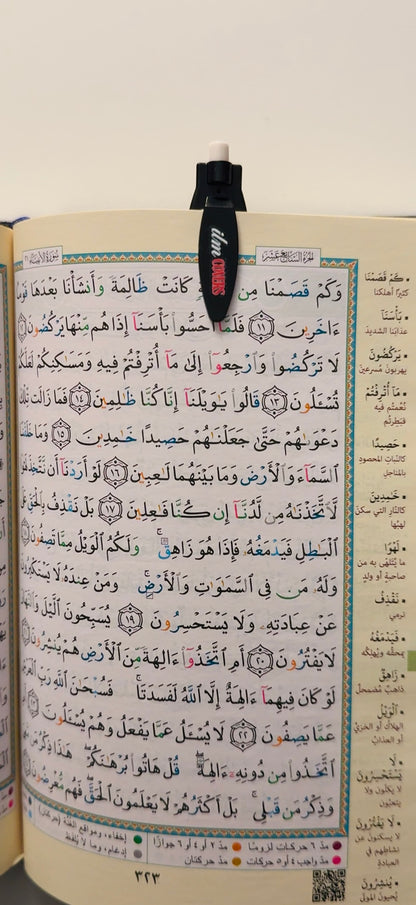 ilm
CORNERS
الجزء السابع عشر
سورة الأنبياء ٢١
وَكَمْ قَصَمْنَا مِن كَانَتْ ظَالِمَةً وَأَنشَأْنَا بَعْدَهَا قَوْمًا
ءَاخَرِينَ ١١ فَلَمَّآ أَحَسُّوا۟ بَأْسَنَآ إِذَا هُم مِّنْهَا يَرْكُضُونَ
لَا تَرْكُضُوا۟ وَٱرْجِعُوٓا۟ إِلَىٰ مَآ أُتْرِفْتُمْ فِيهِ وَمَسَـٰكِنِكُمْ لَعَلَّكُمْ
تُسْـَٔلُونَ ١٣ قَالُوا۟ يَـٰوَيْلَنَآ إِنَّا كُنَّا ظَـٰلِمِينَ ١٤ فَمَا زَالَت تِّلْكَ
دَعْوَىٰهُمْ حَتَّىٰ جَعَلْنَـٰهُمْ حَصِيدًا خَـٰمِدِينَ ١٥ وَمَا خَلَقْنَا
ٱلسَّمَآءَ وَٱلْأَرْضَ وَمَا بَيْنَهُمَا لَـٰعِبِينَ ١٦ لَوْ أَرَدْنَآ أَن نَّتَّخِذَ
لَّٱتَّخَذْنَـٰهُ مِن لَّدُنَّآ إِن كُنَّا فَـٰعِلِينَ ١٧ بَلْ نَقْذِفُ بِٱلْحَقِّ عَلَى
ٱلْبَـٰطِلِ فَيَدْمَغُهُۥ فَإِذَا هُوَ زَاهِقٌ ۚ وَلَكُمُ ٱلْوَيْلُ مِمَّا تَصِفُونَ
وَلَهُۥ مَن فِى ٱلسَّمَـٰوَٰتِ وَٱلْأَرْضِ ۚ وَمَنْ عِندَهُۥ لَا يَسْتَكْبِرُونَ
عَنْ عِبَادَتِهِۦ وَلَا يَسْتَحْسِرُونَ ١٩ يُسَبِّحُونَ ٱلَّيْلَ وَٱلنَّهَارَ
لَا يَفْتُرُونَ ٢٠ أَمِ ٱتَّخَذُوٓا۟ ءَالِهَةً مِّنَ ٱلْأَرْضِ هُمْ يُنشِرُونَ
لَوْ كَانَ فِيهِمَآ ءَالِهَةٌ إِلَّا ٱللَّهُ لَفَسَدَتَا ۚ فَسُبْحَـٰنَ ٱللَّهِ رَبِّ ٱلْعَرْشِ
عَمَّا يَصِفُونَ ٢٢ لَا يُسْـَٔلُ عَمَّا يَفْعَلُ وَهُمْ يُسْـَٔلُونَ
ٱتَّخَذُوا۟ مِن دُونِهِۦٓ ءَالِهَةً ۖ قُلْ هَاتُوا۟ بُرْهَـٰنَكُمْ ۖ هَـٰذَا ذِكْرُ مَن
وَذِكْرُ مَن قَبْلِى ۗ بَلْ أَكْثَرُهُمْ لَا يَعْلَمُونَ ٱلْحَقَّ ۖ فَهُم مُّعْرِضُونَ
كَمْ قَصَمْنَا
كثيرًا أهلكنا
بَأْسَنَآ
عذابنا الشديد
يَرْكُضُونَ
يهربون مُسرعين
مَآ أُتْرِفْتُمْ
نُعِّمتُم فيه
فبطِرتُم
حَصِيدًا
كالنبات المحصود
بالمناجل
خَـٰمِدِينَ
كالنار التي سكن
لهبها
لَهْوًا
ما يُتلهّى به من
صاحبةٍ أو ولدٍ
نَقْذِفُ
نرمي
فَيَدْمَغُهُۥ
يمحقُه ويُهلكُه
زَاهِقٌ
ذاهبٌ مُضمحلٌّ
ٱلْوَيْلُ
الهلاكُ أو الخزيُ
أو العذابُ
لَا
يَسْتَحْسِرُونَ
لا يكلّون ولا
يتعبون
لَا يَفْتُرُونَ
لا يسكنون عن
نشاطهم في
العبادةِ
يُنشِرُونَ
يُحيون الموتى
مدّ ٦ حركات لزومًا
مدّ ٢ أو ٤ أو ٦ جوازًا
إخفاء، ومواقع الغُنّة (حركتان)
مدّ واجب ٤ أو ٥ حركات
مدّ حركتان
إدغام، وما لا يُلفظ
٣٢٣